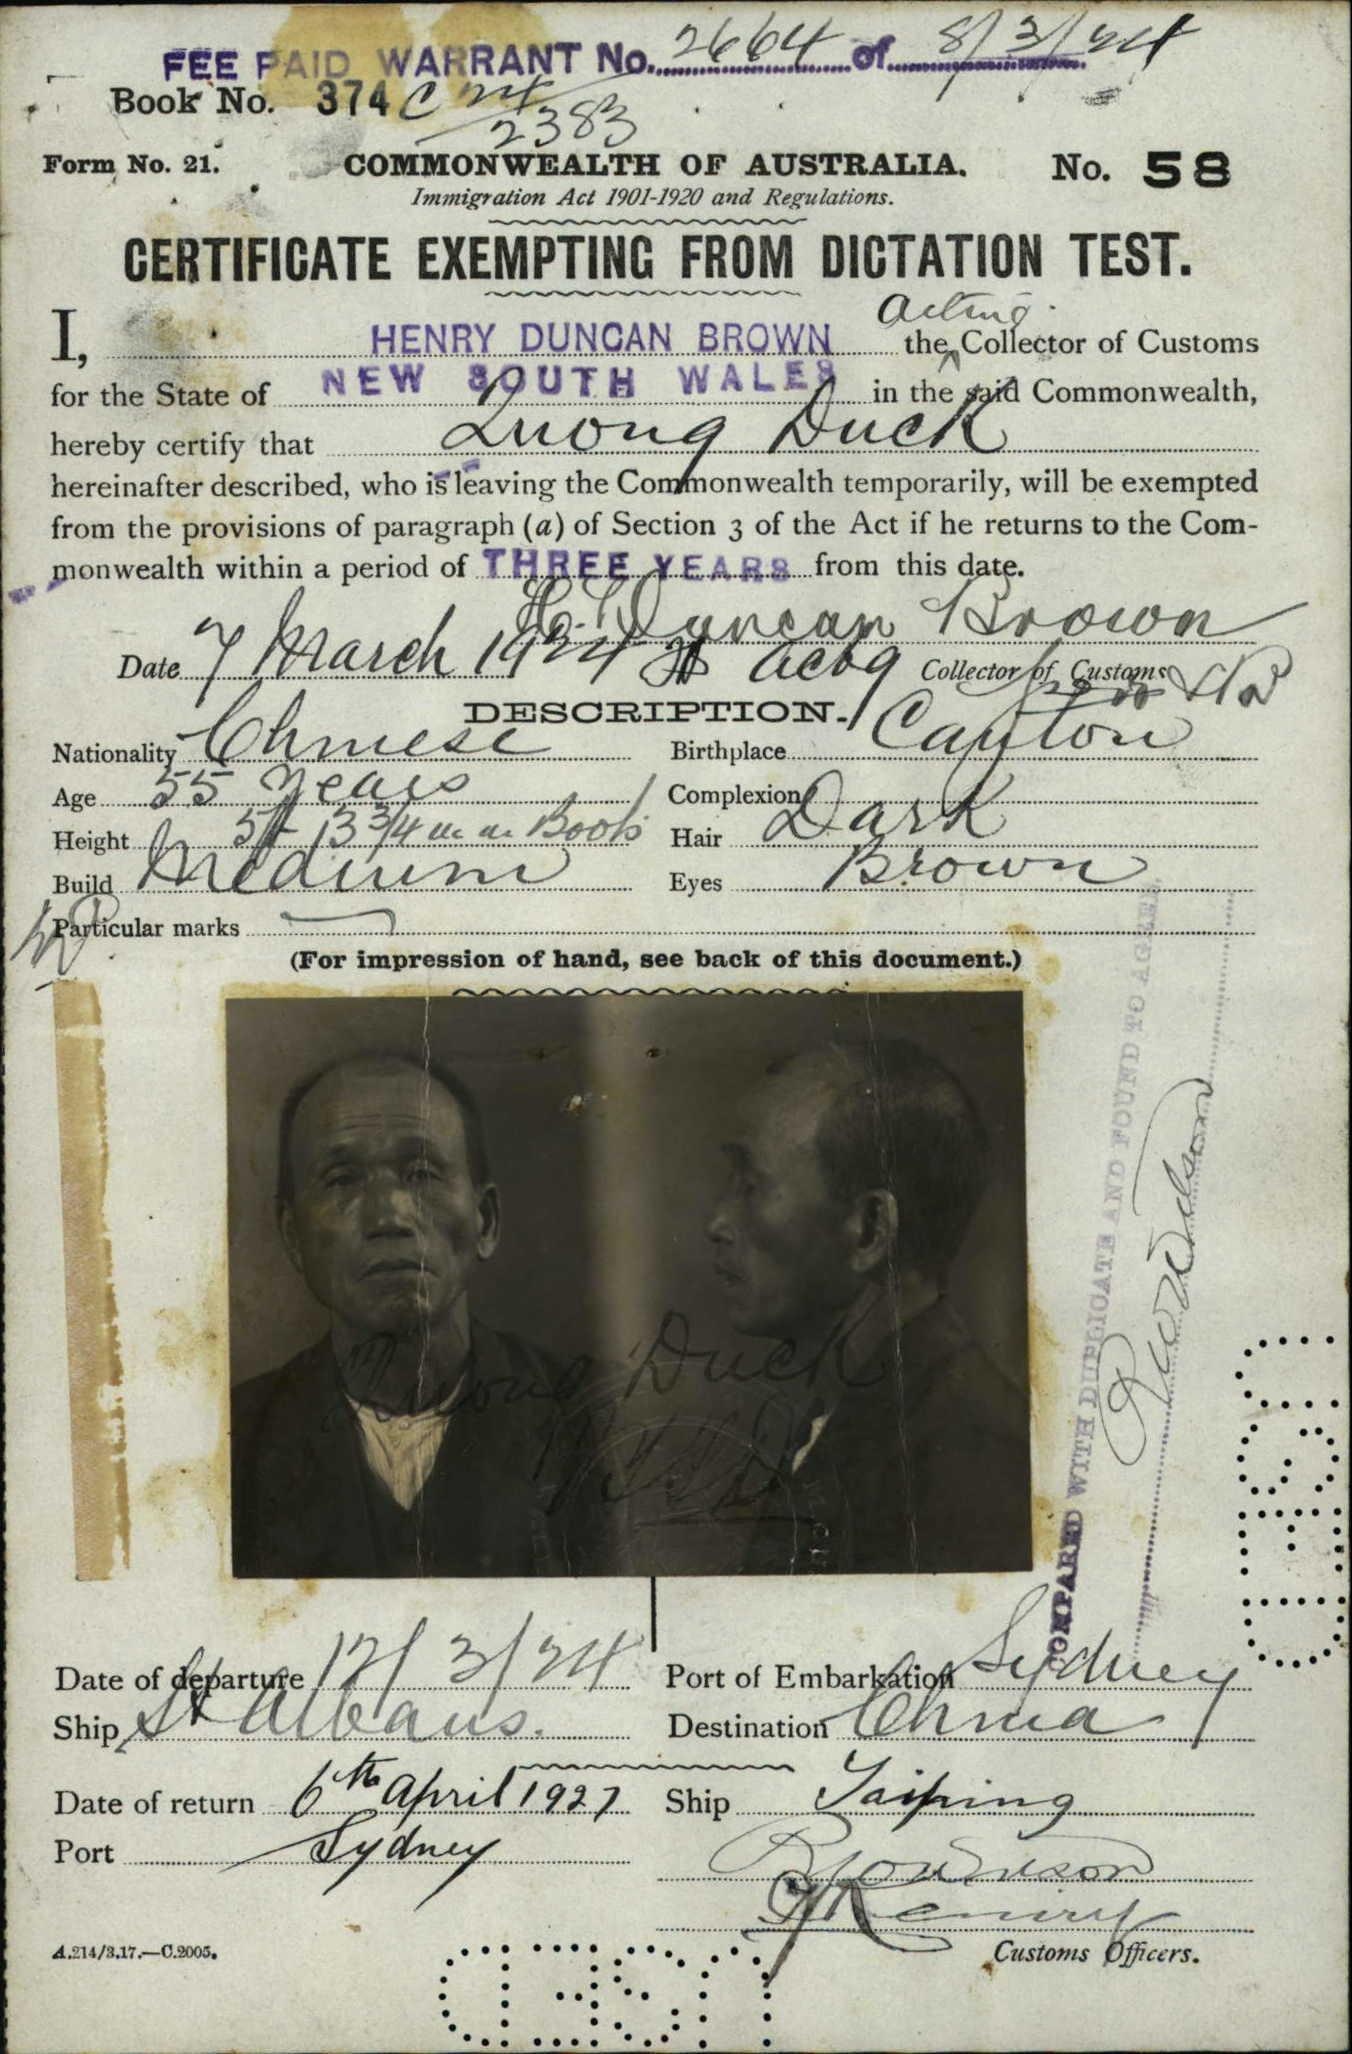 FEE PAID WARRANT No. 2664 of 8/3/24
Book No. 374 C 24/2383
Form No. 21. COMMONWEALTH OF AUSTRALIA. No. 58
Immigration Act 1901-1920 and Regulations.
CERTIFICATE EXEMPTING FROM DICTATION TEST.
acting
I, HENRY DUNCAN BROWN the Collector of Customs
for the State of NEW SOUTH WALES in the said Commonwealth,
hereby certify that Quong Duck
hereinafter described, who is leaving the Commonwealth temporarily, will be exempted
from the provisions of paragraph (a) of Section 3 of the Act if he returns to the Com-
monwealth within a period of THREE YEARS from this date.
H. Duncan Brown
Date 7 March 1924 actg Collector of Customs
DESCRIPTION.
Nationality Chinese Birthplace Canton
Age 55 years Complexion
Height 5ft 3 3/4 in in Boots Hair Dark
Build Medium Eyes Brown
Particular marks
(For impression of hand, see back of this document.)
COMPARED WITH DUPLICATE AND FOUND TO AGREE.
Quong Duck
Date of departure 12/3/24 Port of Embarkation Sydney
Ship St Albans. Destination China
Date of return 6th April 1927 Ship Taiping
Port Sydney
Customs Officers.
A.214/3.17.—C.2005.